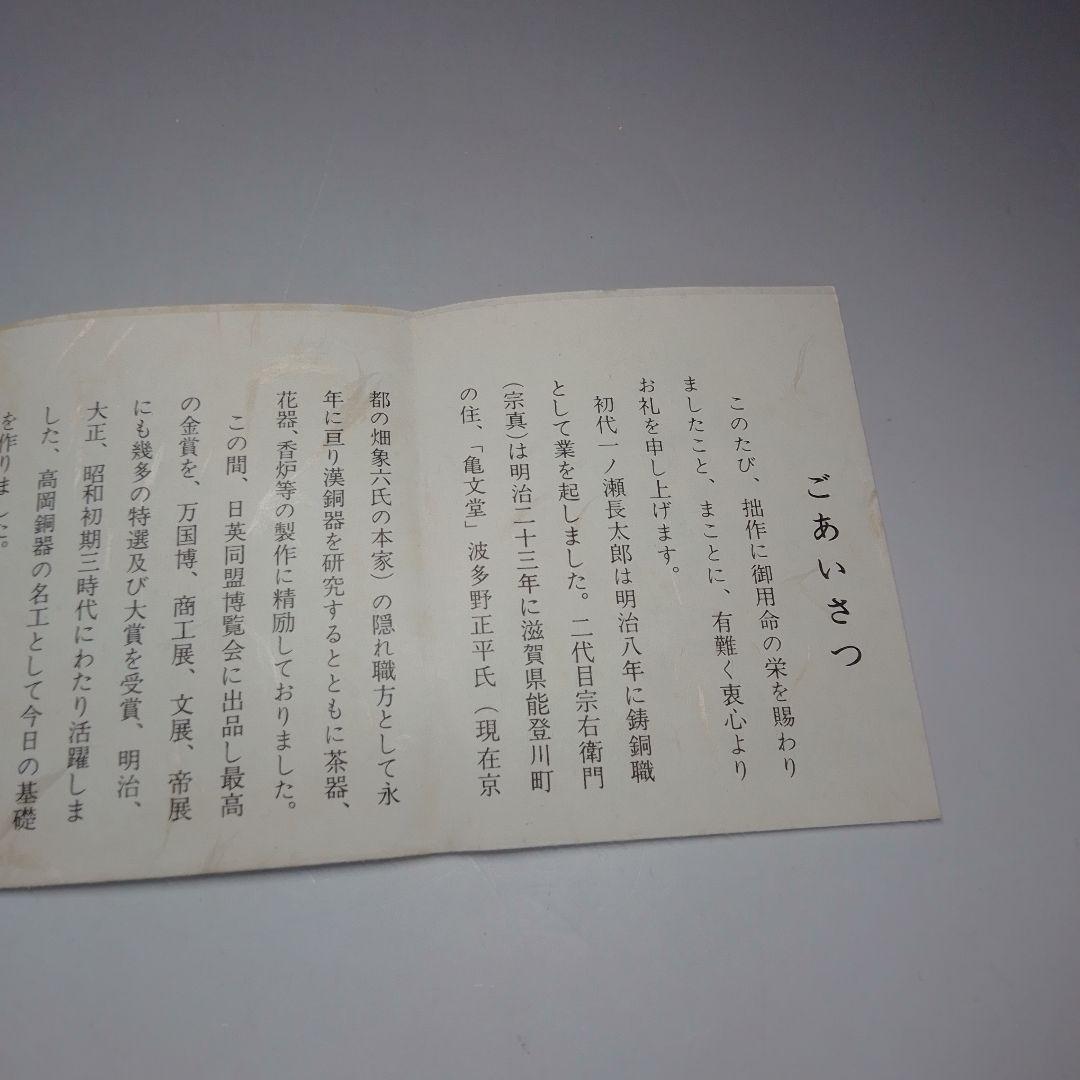 ごあいさつ
このたび、拙作に御用命の栄を賜わり
ましたこと、まことに、有難く衷心より
お礼を申し上げます。
初代一ノ瀬長太郎は明治八年に鋳銅職
として業を起しました。二代目宗右衛門
(宗真)は明治二十三年に滋賀県能登川町
の住、「亀文堂」波多野正平氏(現在京
都の畑象六氏の本家)の隠れ職方として永
年に亘り漢銅器を研究するとともに茶器、
花器、香炉等の製作に精励しておりました。
この間、日英同盟博覧会に出品し最高
の金賞を、万国博、商工展、文展、帝展
にも幾多の特選及び大賞を受賞、明治、
大正、昭和初期三時代にわたり活躍しま
した、高岡銅器の名工として今日の基礎
を作りました。